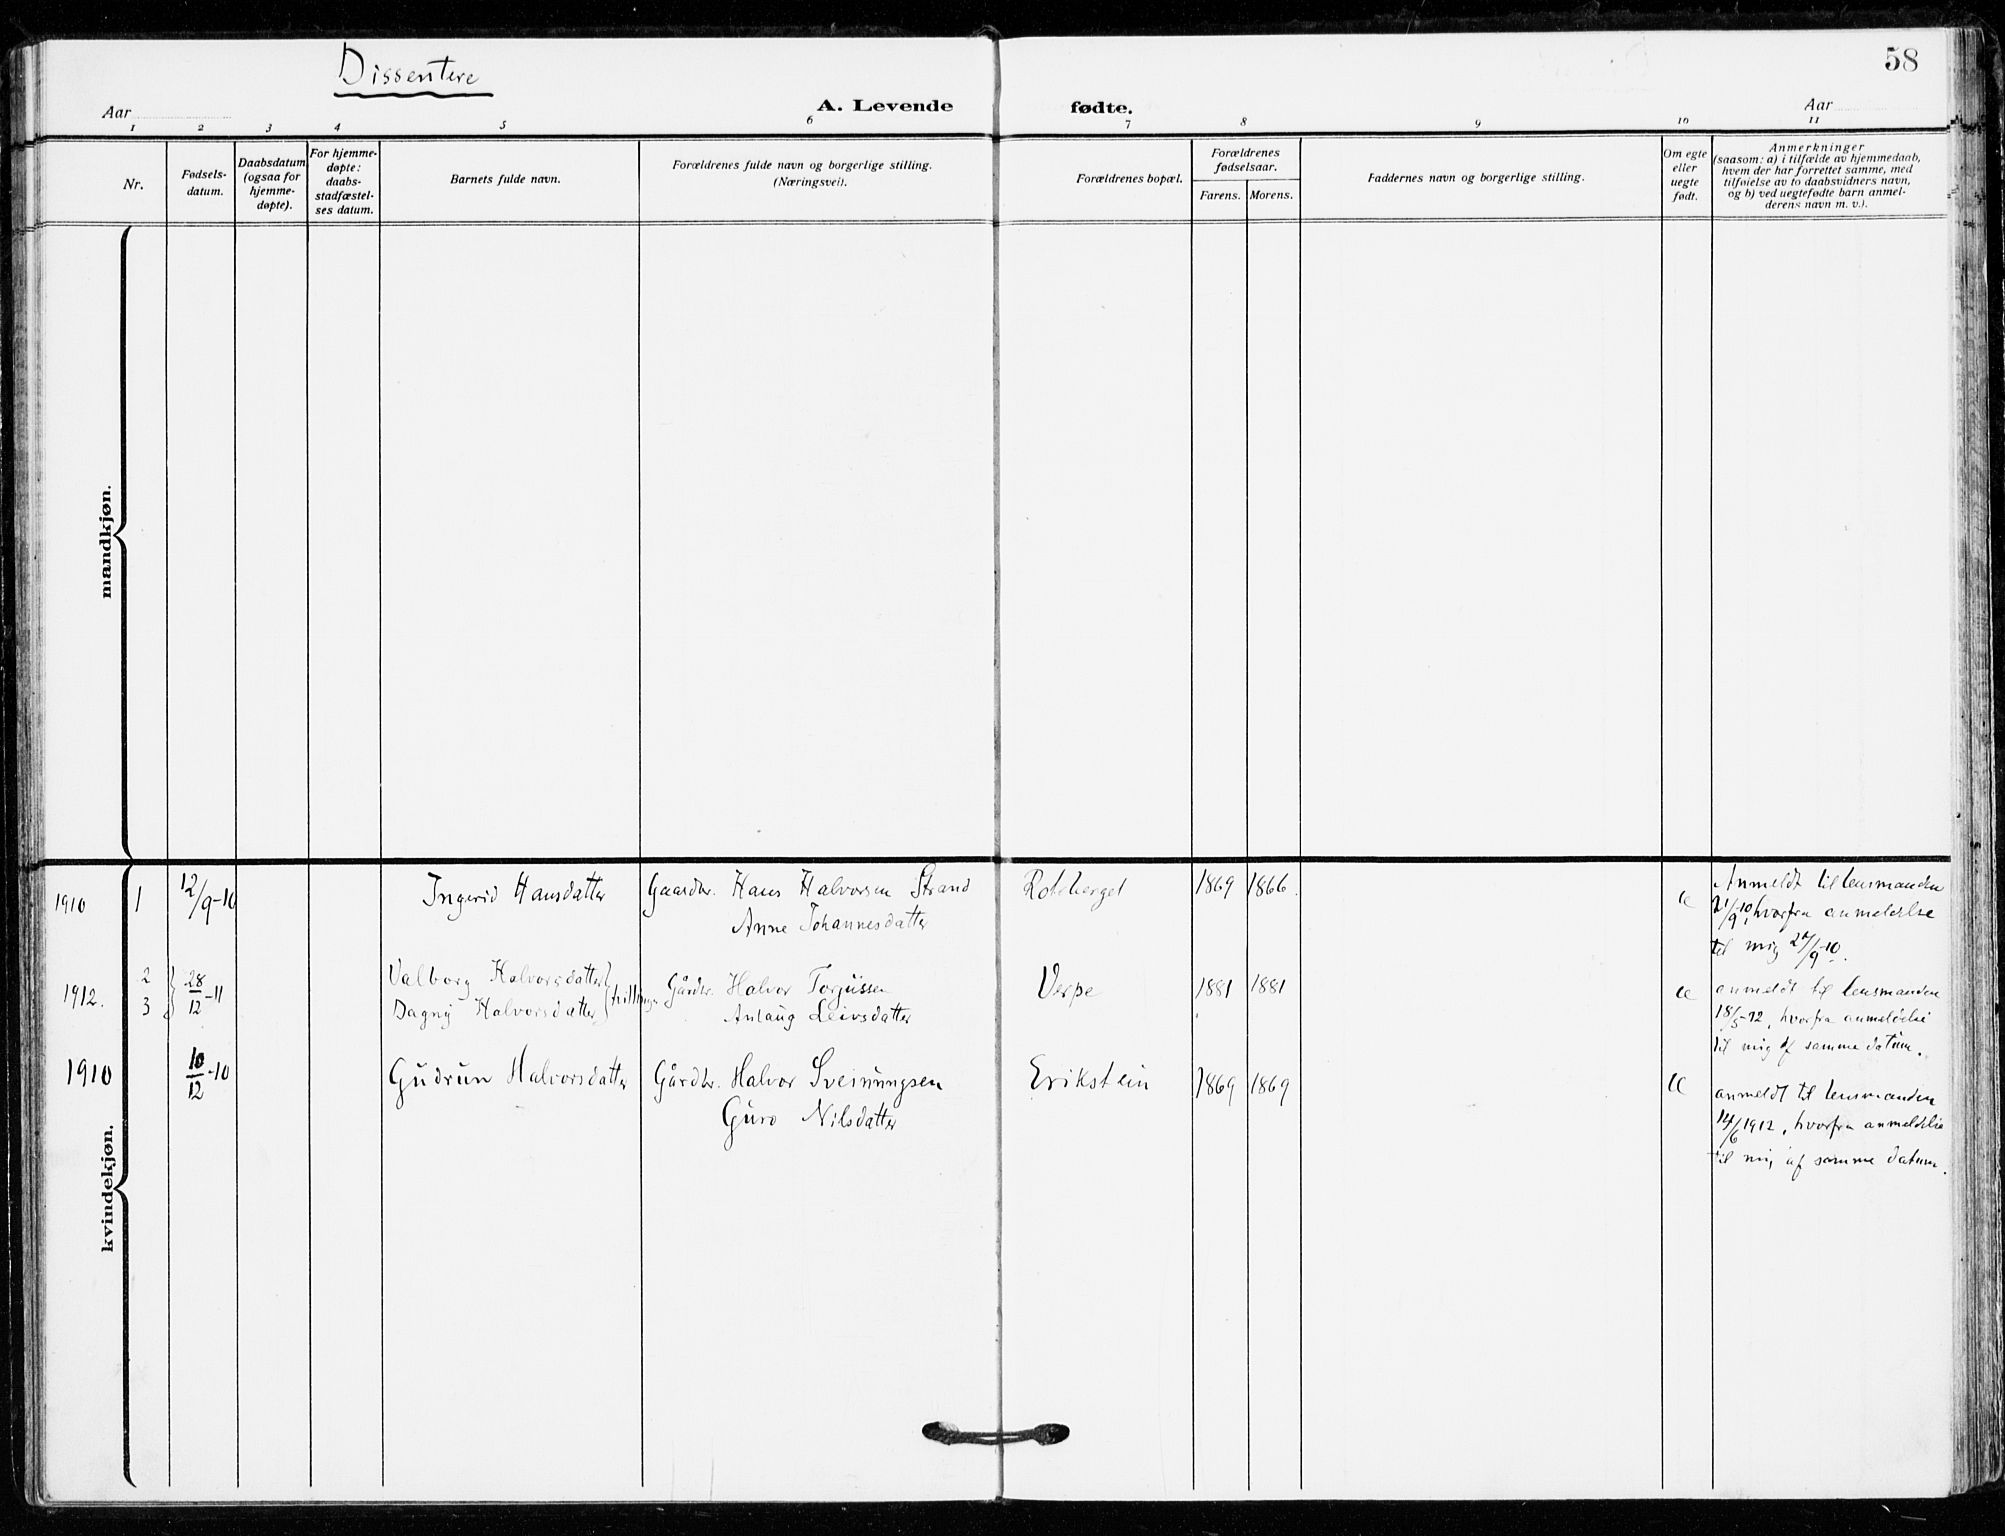 Dissentere
58
Aar
A. Levende
fødte.
Aar
1 2 3 4 5 6 7 8 9 10 11
Nr.
Fødsels-
datum.
Daabsdatum
(ogsaa for
hjemme-
døpte).
For hjemme-
døpte:
daabs-
stadfæstel-
ses datum.
Barnets fulde navn.
Forældrenes fulde navn og borgerlige stilling.
(Næringsvei).
Forældrenes bopæl.
Forældrenes
fødselsaar.
Farens. Morens.
Faddernes navn og borgerlige stilling.
Om egte
eller
uegte
født.
Anmerkninger
(saasom: a) i tilfælde av hjemmedaab,
hvem der har forrettet samme, med
tilføielse av to daabsvidners navn,
og b) ved uegtefødte barn anmel-
derens navn m. v.).
mandkjøn.
kvindekjøn.
1910 1 12/9-10 Ingerid Hansdatter Gaardbr. Hans Halvorsen Strand
Anne Johannesdatter
Roteberget 1869 1866. e
Anmeldt til lensmanden
21/9-10, hvorfra anmeldelse
til mig /9-10.
1912. 2 28/12-11 Valborg Halvorsdatter
3 Dagny Halvorsdatter tvillinger
Gårdbr. Halvor Torjussen
Anlaug Leivsdatter
Verpe 1881 1881 e
anmeldt til lensmanden
18/5-12, hvorfra anmeldelse
til mig af samme datum.
1910 10/12-10 Gudrun Halvorsdatter Gårdbr. Halvor Sveinungsen
Guro Nilsdatter
Erikstein 1869 1869 e
anmeldt til lensmanden
14/6 1912, hvorfra anmeldelse
til mig af samme datum.